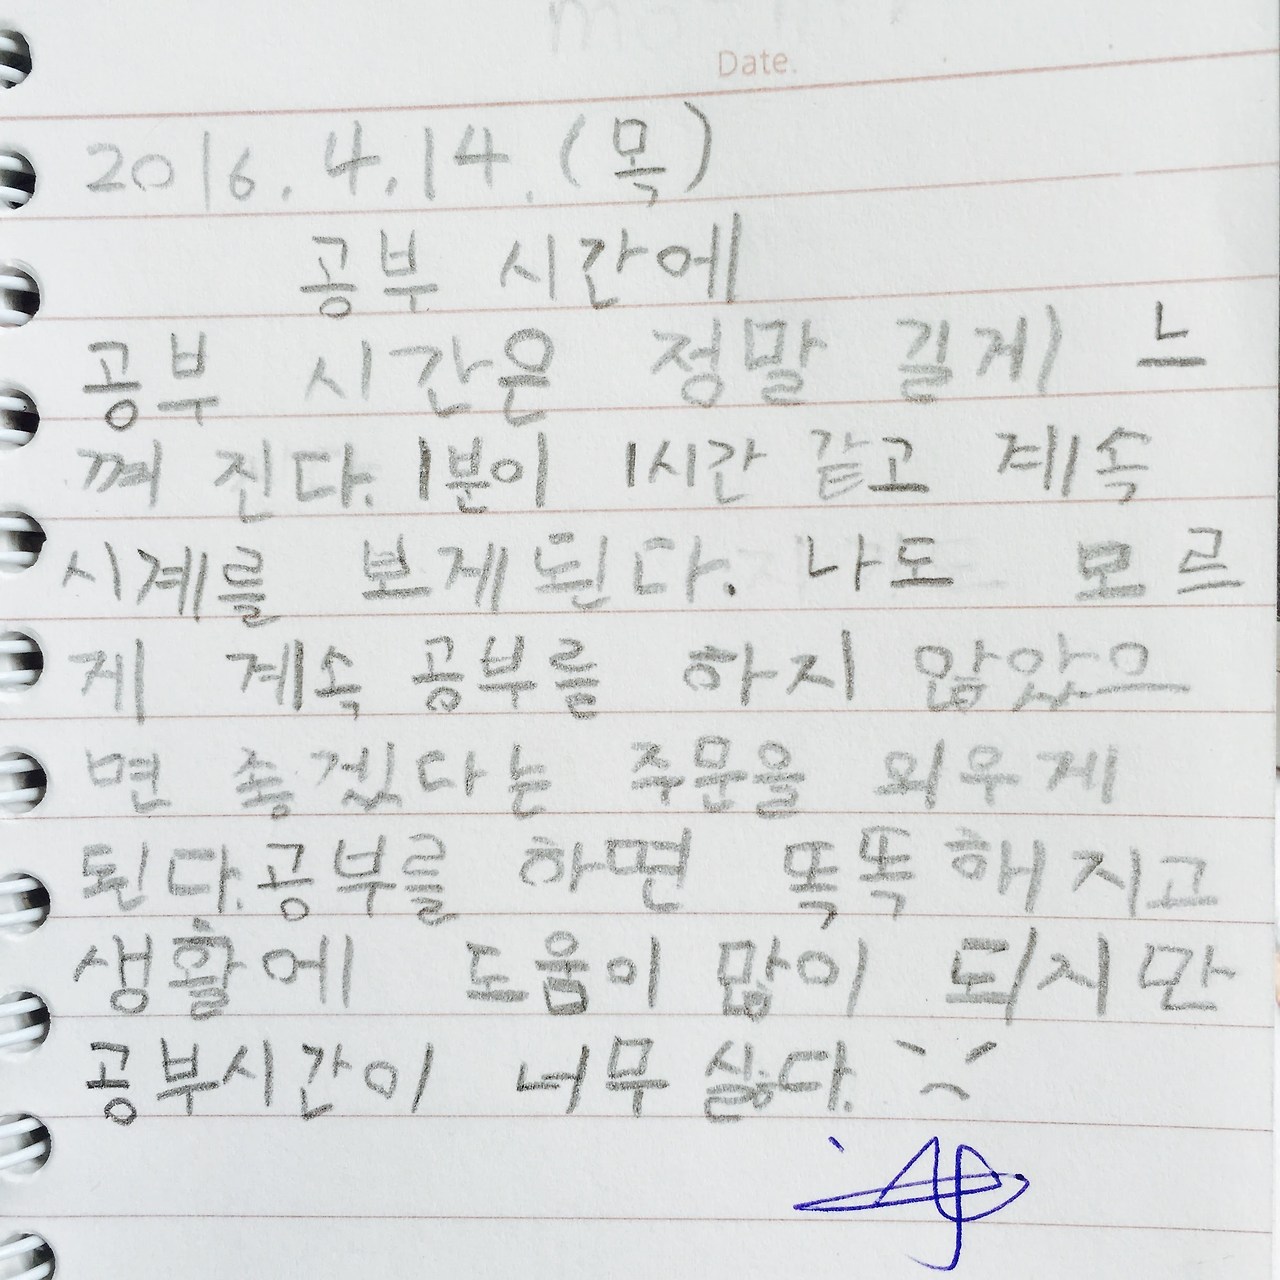 Date.
2016. 4. 14. (목)
공부 시간에
공부 시간은 정말 길게 느
껴 진다. 1분이 1시간 같고 계속
시계를 보게 된다. 나도 모르
게 계속 공부를 하지 않았으
면 좋겠다는 주문을 외우게
된다. 공부를 하면 똑똑해 지고
생활에 도움이 많이 되지만
공부시간이 너무 싫다.